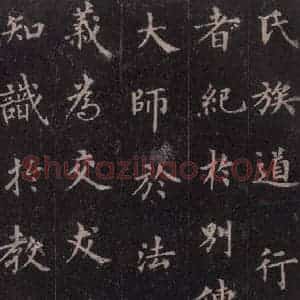 氏族道行
者紀於別傳
大師於法
義為交友
知識於教
Shufaziliao.COM